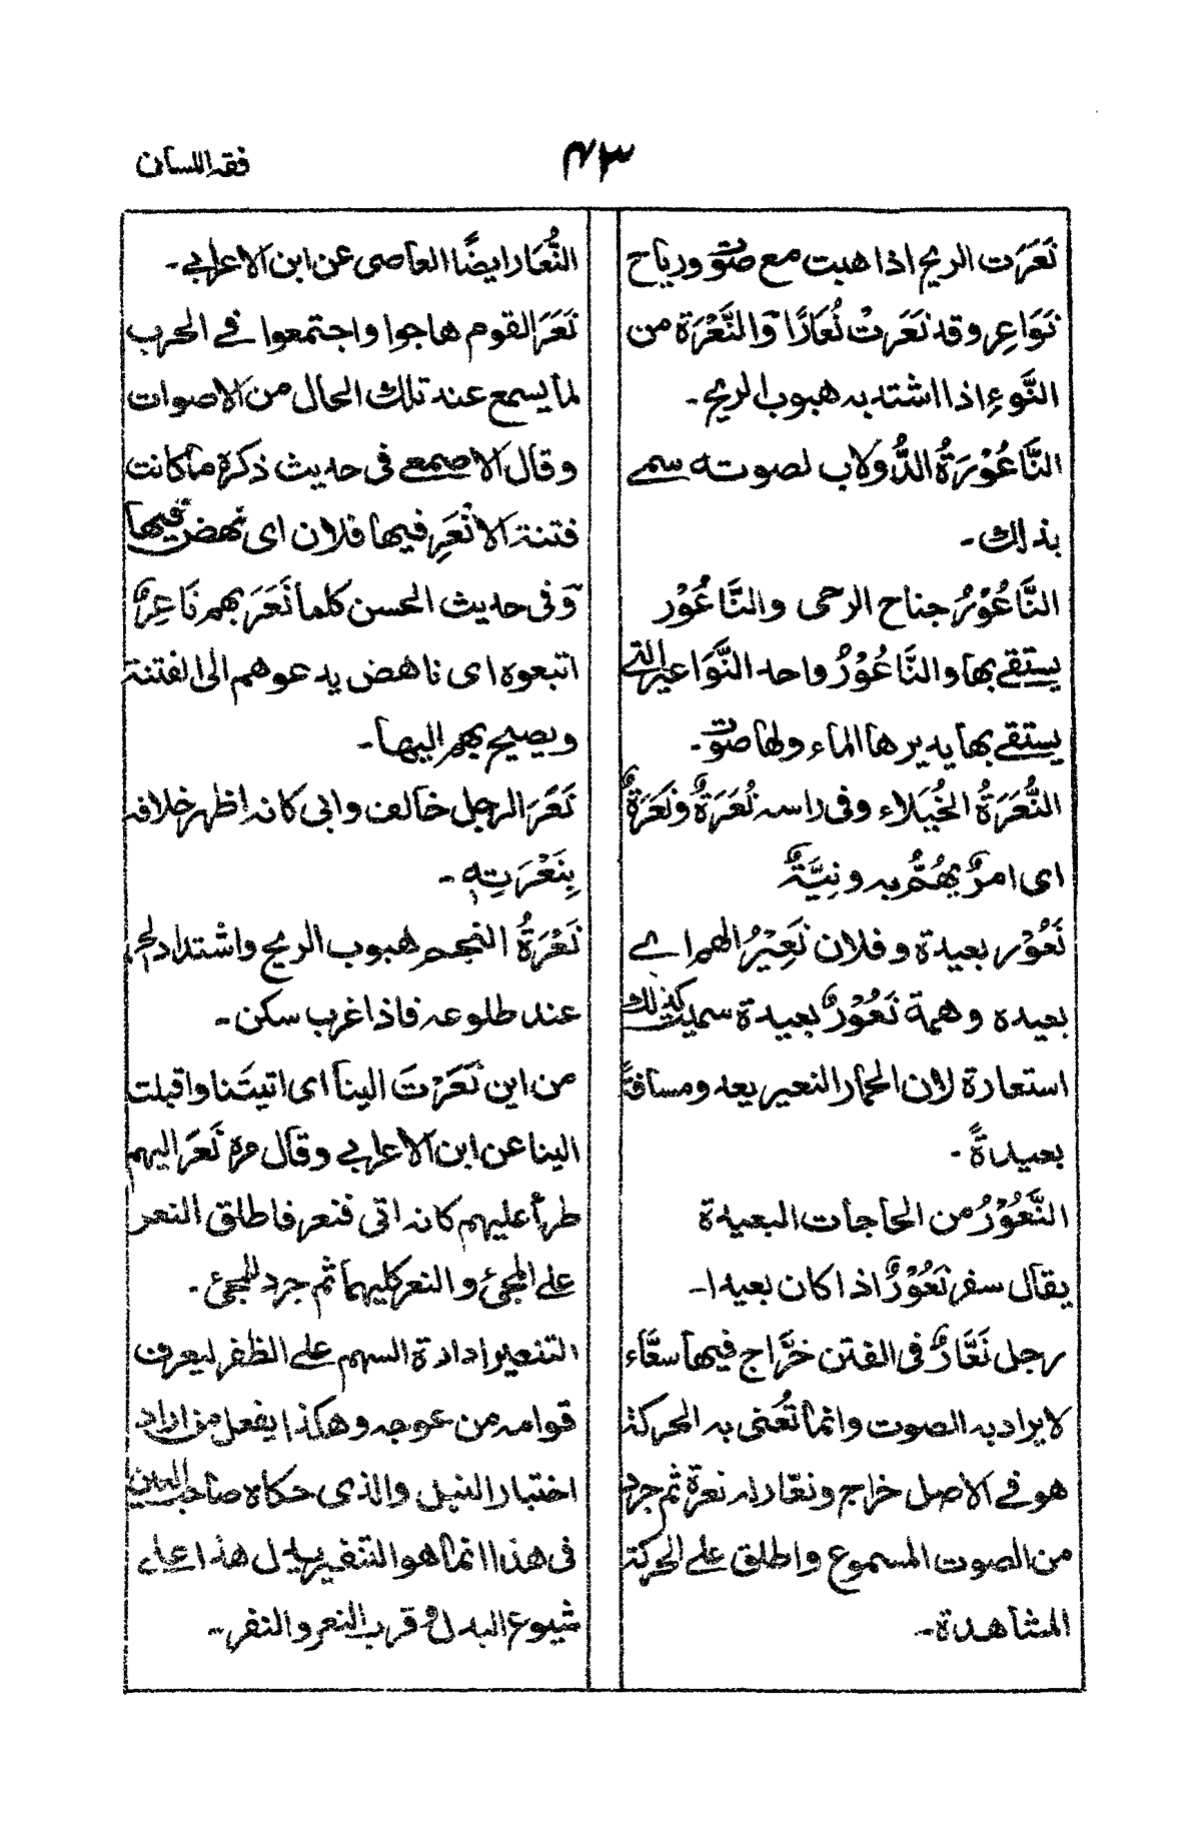 فقه اللسان
۷۳
نَعَرَت الريح اذا هبت مع صوت ورياح
نَوَاعِر وقد نَعَرَتْ نُعَارًا وَالنَّعْرَة من
النَّوءِ اذا اشتد به هبوب الريح۔
النَّاعُوْرَةُ الدُّولاب لصوته سمے
بذلك۔
النَّاعُوْرُ جناح الرحى والنَّاعُوْر
يستقے بها والنَّاعُوْرُ واحد النَّوَاعير التے
يستقے بها يديرها الماء ولها صوت۔
النُّعَرَةُ الخُيَلاء وفى راسه نُعَرَةٌ ونَعَرَةٌ
اى امرٌ يَهُمُّ به ونِيَّةٌ
نَعُوْر بعيدة وفلان نَعِيْرُ الهم اے
بعيده وهمة نَعُوْرٌ بعيدة سميت كذلك
استعارة لان الحمار النعير يعد ومسافةً
بعيدةً۔
النَّعُوْرُ من الحاجات البعيدة
يقال سفر نَعُوْرٌ اذا كان بعيدا۔
رجل نَعَّارٌ فى الفتن خرَّاج فيها سعَّاء
لا يراد به الصوت وانما تُعنى به الحركة
هو فے الاصل خراج ونعّار له نعرة ثم جرد
من الصوت المسموع واطلق علے الحركة
المشاهدة۔
النُّعَار ايضًا العاصى عن ابن الاعرابے۔
نَعَرَ القوم هاجوا واجتمعوا فے الحرب
لما يسمع عند تلك الحال من الاصوات
وقال الاصمعے فى حديث ذكرة ما كانت
فتنة الا نَعَرِ فيها فلان اى نهض فيها
وَفى حديث الحسن كلما نَعَرَ بهم نَاعِرٌ
اتبعوه اى ناهض يدعوهم الى الفتنة
ويصيح بهم اليها۔
نَعَرَ الرجل خالف وابى كانه اظهر خلافه
بِنَعْرَتِهٖ۔
نَعْرَةُ النجم هبوب الريح واشتداد الحر
عند طلوعه فاذا غرب سكن۔
من اين نَعَرْتَ الينا اى اتيتَنا واقبلت
الينا عن ابن الاعرابے وقال مرة نَعَرَ اليهم
طرأ عليهم كانه اتى فنعر فاطلق النعر
علے المجئ والنعر كليهما ثم جرد للمجئ۔
التنعير ادارة السهم علے الظفر ليعرف
قوامه من عوجه وهكذا يفعل من اراد
اختبار النبل والذى حكاه صاحب العين
فى هذا انما هو التنفير يدل هذا علے
شيوع البدل وقرب النعر والنفر۔